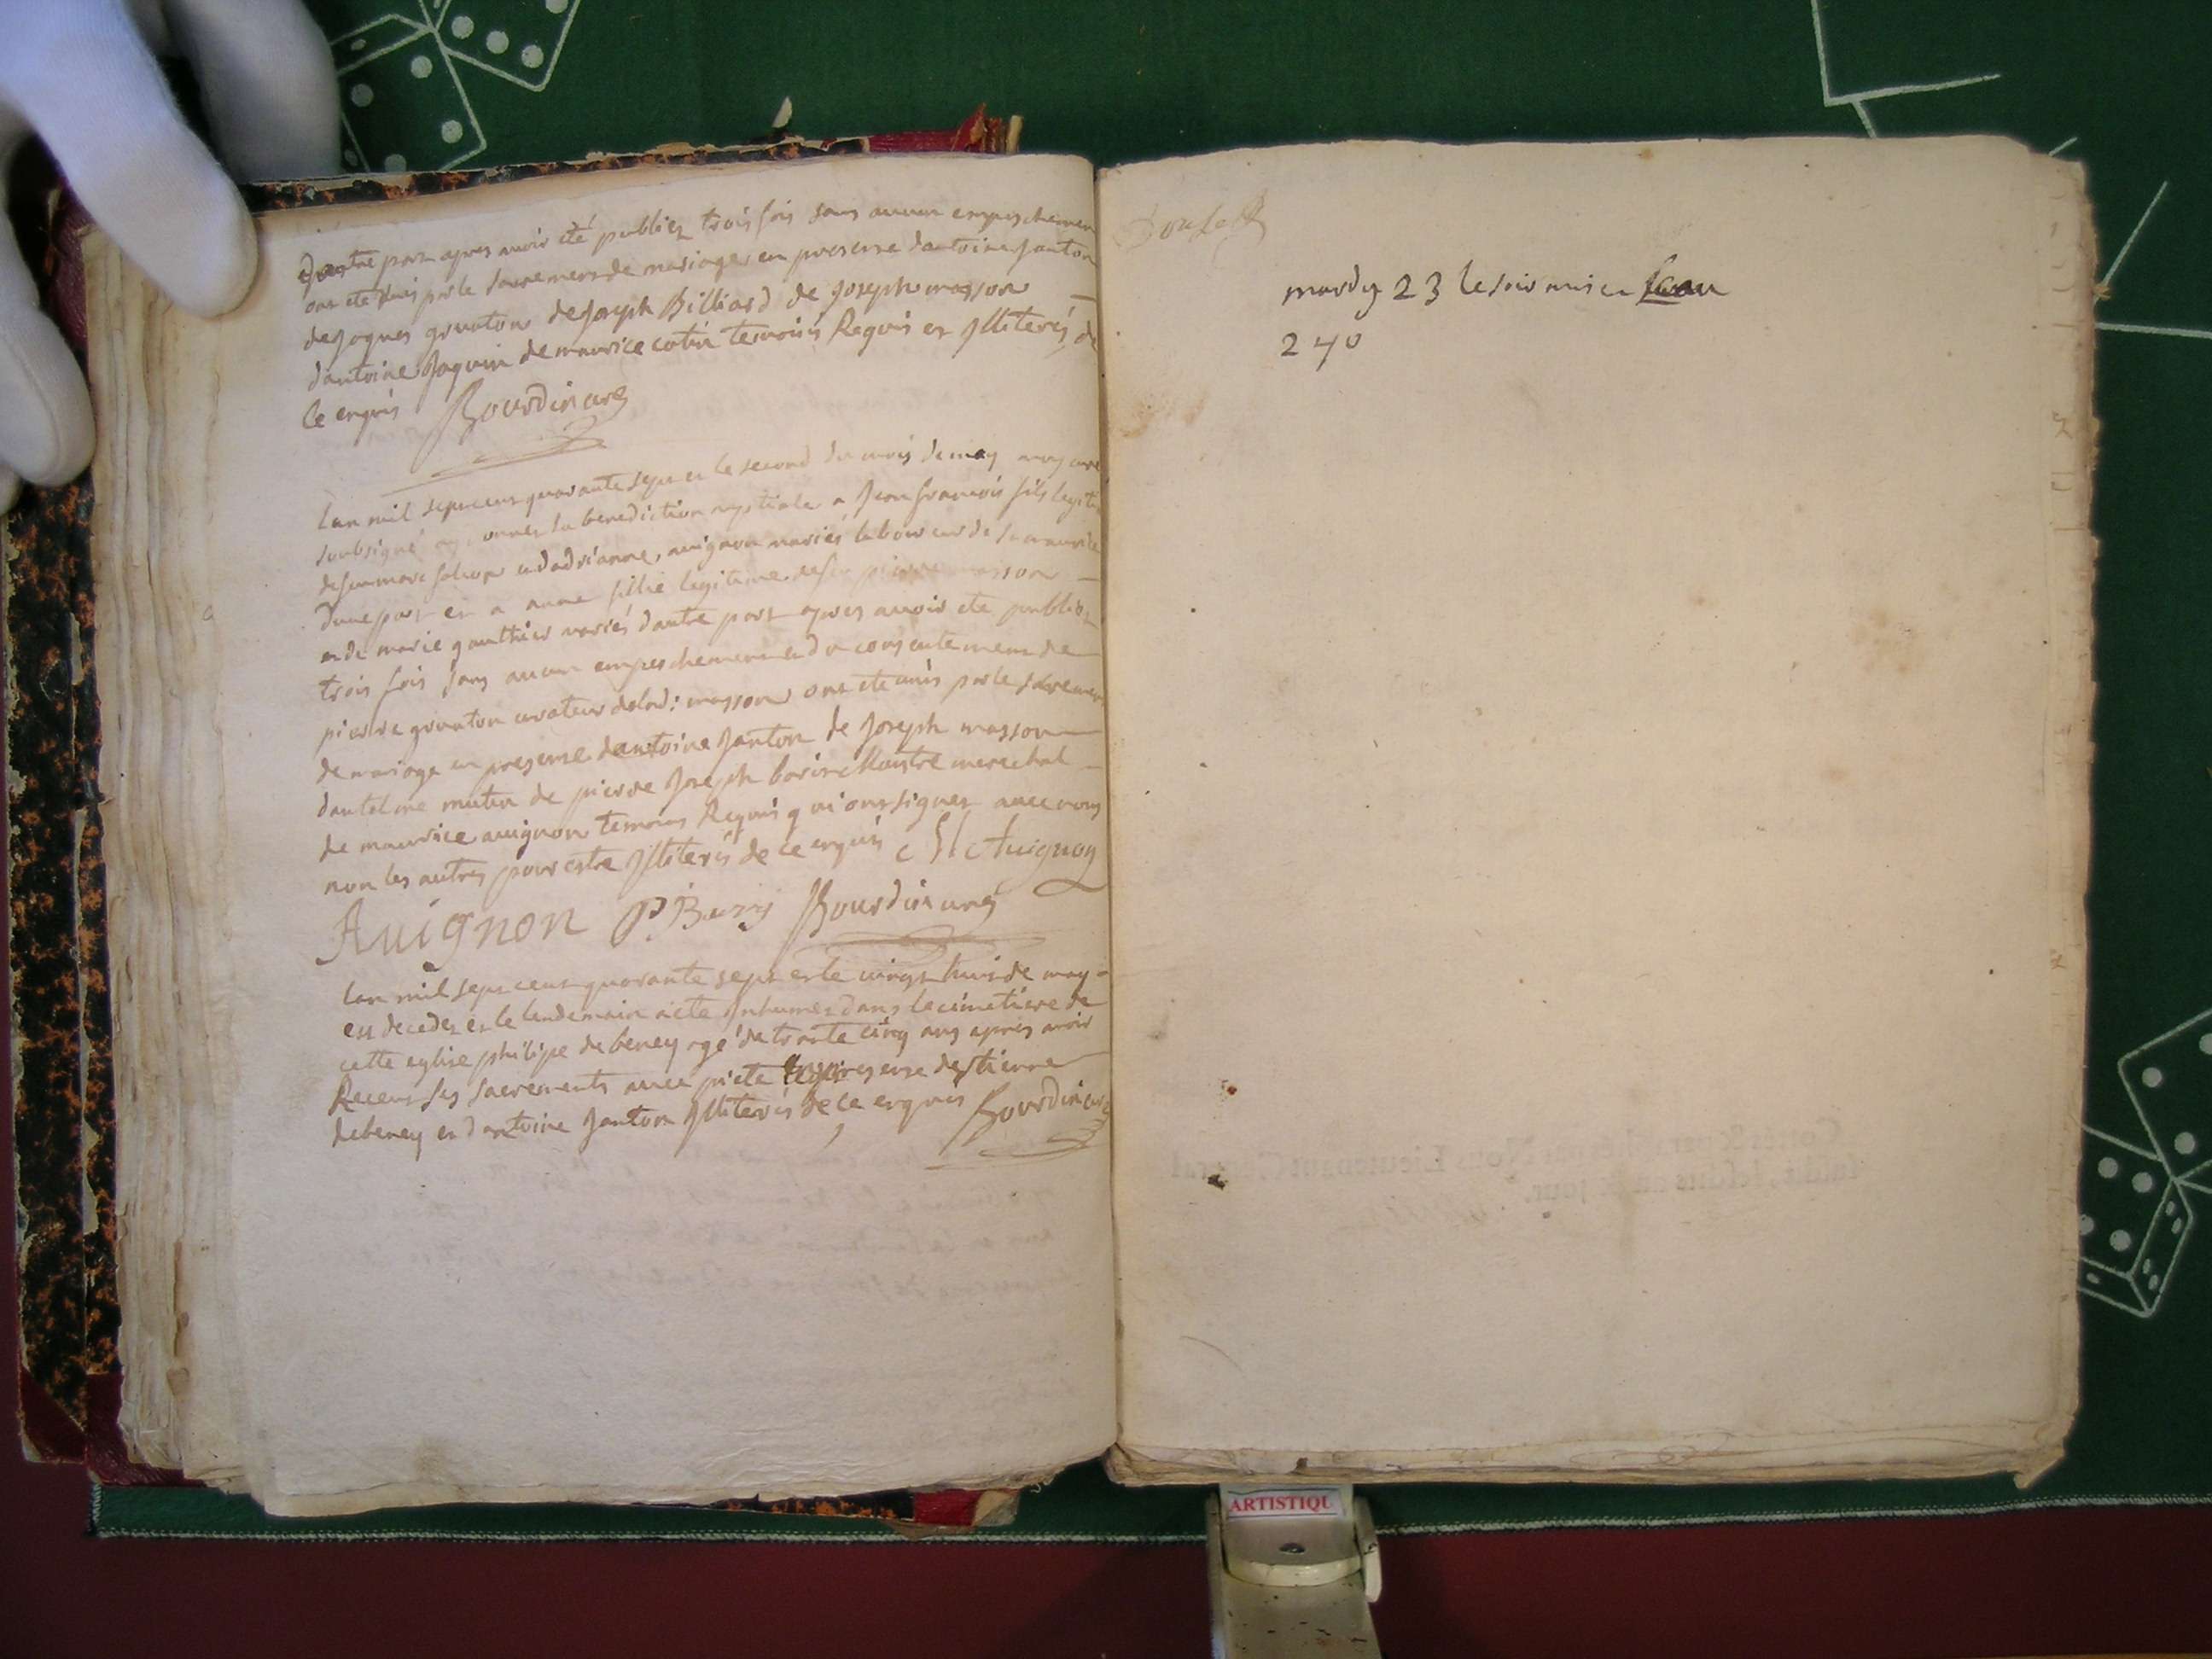 dautre part apres avoir eté publiez trois fois sans aucun empeschemen
ont eté unis par le sacrement de mariage en presence dantoine Janton
de Joseph Billiard de Joseph masson
dantoine Jaquin de maurice cotin temoins Requis et Illiterés de
ce enquis Bourdin curé
lan mil sept cent quarante sept et le second du mois de may moy curé
soubsigné ay donnez la benediction nuptiale a Jean francois fils legiti
de feu marc et dadrianne avignon mariés laboureur de St maurice
dune part et a anne fillie legitime de feu pierre masson
et de marie gauthier mariés dautre part apres avoir eté publiez
trois fois sans aucun empeschement et du consentement de
pierre curateur de lad: masson ont eté unis par le sacremen
de mariage en presence dantoine Janton de Joseph masson
mutin de pierre Joseph maistre marechal
de maurice avignon temoins Requis qui ont signez avec nous
non les autres pour estre Illiterés de ce enquis Avignon
Avignon P Bury Bourdin curé
lan mil sept cent quarante sept et le vingt huit de may
est decedez et le lendemain a eté Inhumez dans le cimetiere de
cette eglise philipe de beney agé de trante cinq ans apres avoir
Receu ses sacrements avec pieté presence destienne
debeney et dantoine Janton Illiterés de ce enquis Bourdin curé
mardy 23 le soir mis en
240
ARTISTIQU